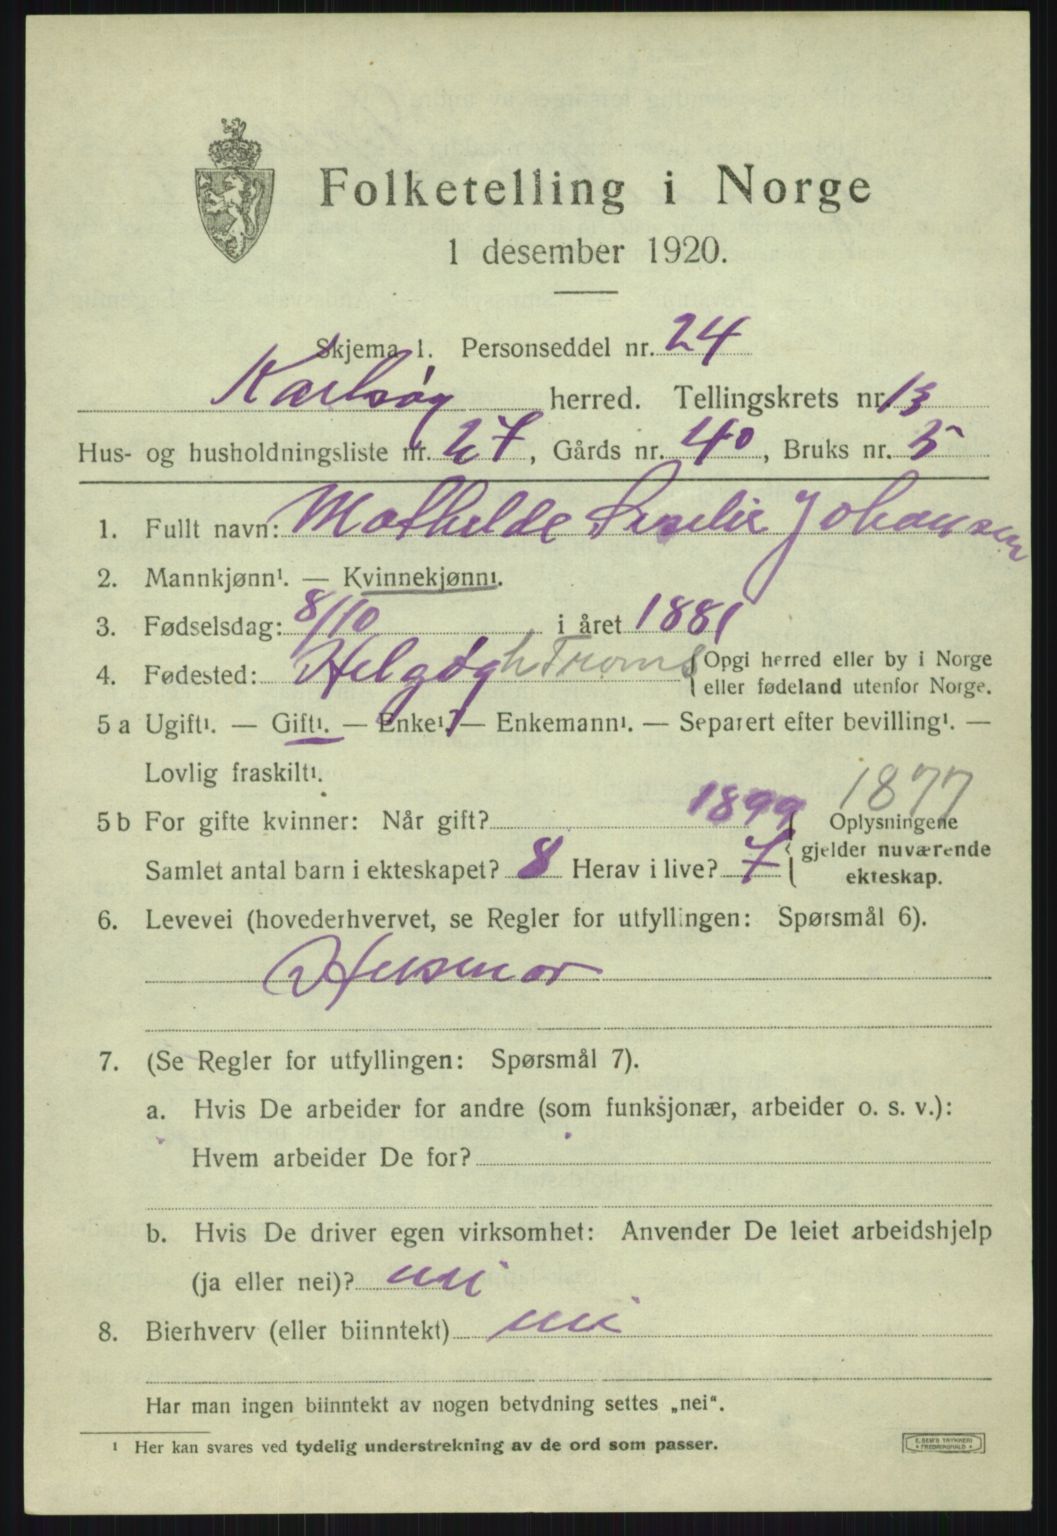 Folketelling i Norge
1 desember 1920.
Skjema 1. Personseddel nr. 24
Karlsøy herred. Tellingskrets nr. 13
Hus- og husholdningsliste nr. 27, Gårds nr. 40, Bruks nr. 5
1. Fullt navn: Mathilde Johansen
2. Mannkjønn¹. — Kvinnekjønn¹.
3. Fødselsdag: 8/10 i året 1881
4. Fødested: Helgøy h Troms { Opgi herred eller by i Norge
eller fødeland utenfor Norge.
5 a Ugift¹. — Gift¹. — Enke¹. — Enkemann¹. — Separert efter bevilling¹. —
Lovlig fraskilt¹.
1877
5 b For gifte kvinner: Når gift? 1899 Oplysningene
Samlet antal barn i ekteskapet? 8 Herav i live? 7 gjelder nuværende
ekteskap.
6. Levevei (hovederhvervet, se Regler for utfyllingen: Spørsmål 6).
Husmor
7. (Se Regler for utfyllingen: Spørsmål 7).
a. Hvis De arbeider for andre (som funksjonær, arbeider o. s. v.):
Hvem arbeider De for?
b. Hvis De driver egen virksomhet: Anvender De leiet arbeidshjelp
(ja eller nei)? nei
8. Bierhverv (eller biinntekt) nei
Har man ingen biinntekt av nogen betydning settes „nei“.
¹ Her kan svares ved tydelig understrekning av de ord som passer.
E. SEM'S TRYKKERI
• FREDRIKSHALD •